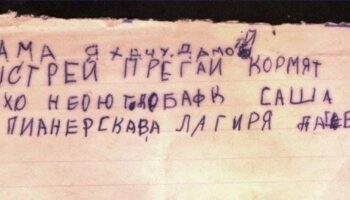 АМА Я ХОЧУ ДАМОЙ
ЫСТРЕЙ ПРЕГАЙ КОРМЯТ
ХО НЕ ДОБАФК САША
ПИАНЕРСКАВА ЛАГИРЯ